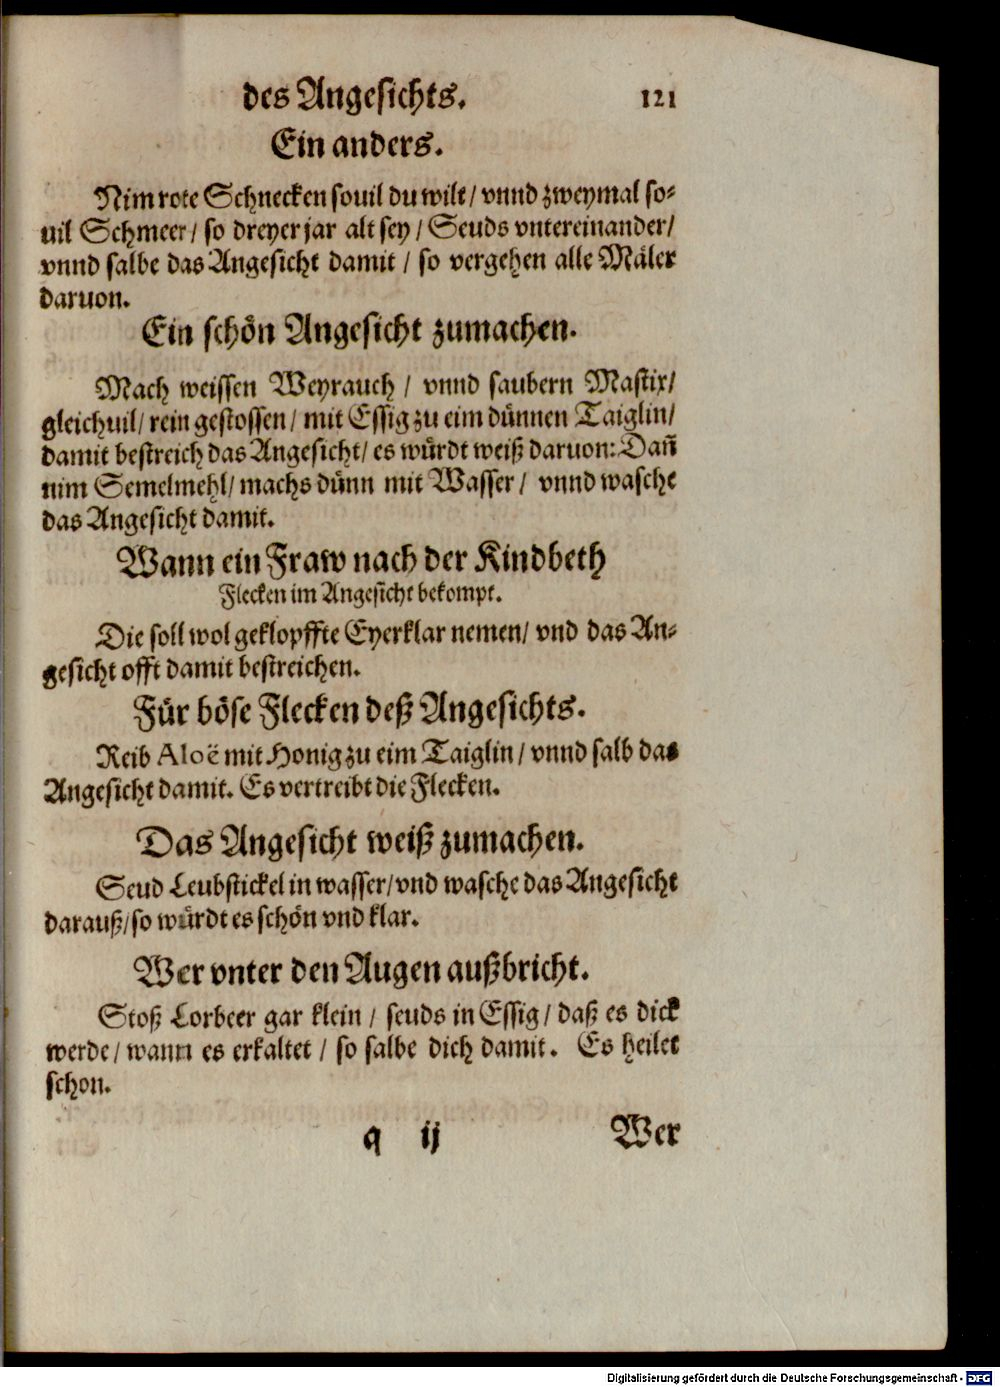 des Angesichts. 121
Ein anders.
Nim rote Schnecken souil du wilt / vnnd zweymal so-
uil Schmeer / so dreyer jar alt sey / Seuds vntereinander /
vnnd salbe das Angesicht damit / so vergehen alle Mäler
daruon.
Ein schön Angesicht zumachen.
Mach weissen Weyrauch / vnnd saubern Mastix /
gleichuil / rein gestossen / mit Essig zu eim dünnen Taiglin /
damit bestreich das Angesicht / es würdt weiß daruon: Dañ
nim Semelmehl / machs dünn mit Wasser / vnnd wasche
das Angesicht damit.
Wann ein Fraw nach der Kindbeth
Flecken im Angesicht bekompt.
Die soll wol geklopffte Eyerklar nemen / vnd das An-
gesicht offt damit bestreichen.
Für böse Flecken deß Angesichts.
Reib Aloë mit Honig zu eim Taiglin / vnnd salb das
Angesicht damit. Es vertreibt die Flecken.
Das Angesicht weiß zumachen.
Seud Leubstickel in wasser / vnd wasche das Angesicht
darauß / so würdt es schön vnd klar.
Wer vnter den Augen außbricht.
Stoß Lorbeer gar klein / seuds in Essig / daß es dick
werde / wann es erkaltet / so salbe dich damit. Es heilet
schon.
q ij Wer
Digitalisierung gefördert durch die Deutsche Forschungsgemeinschaft - DFG